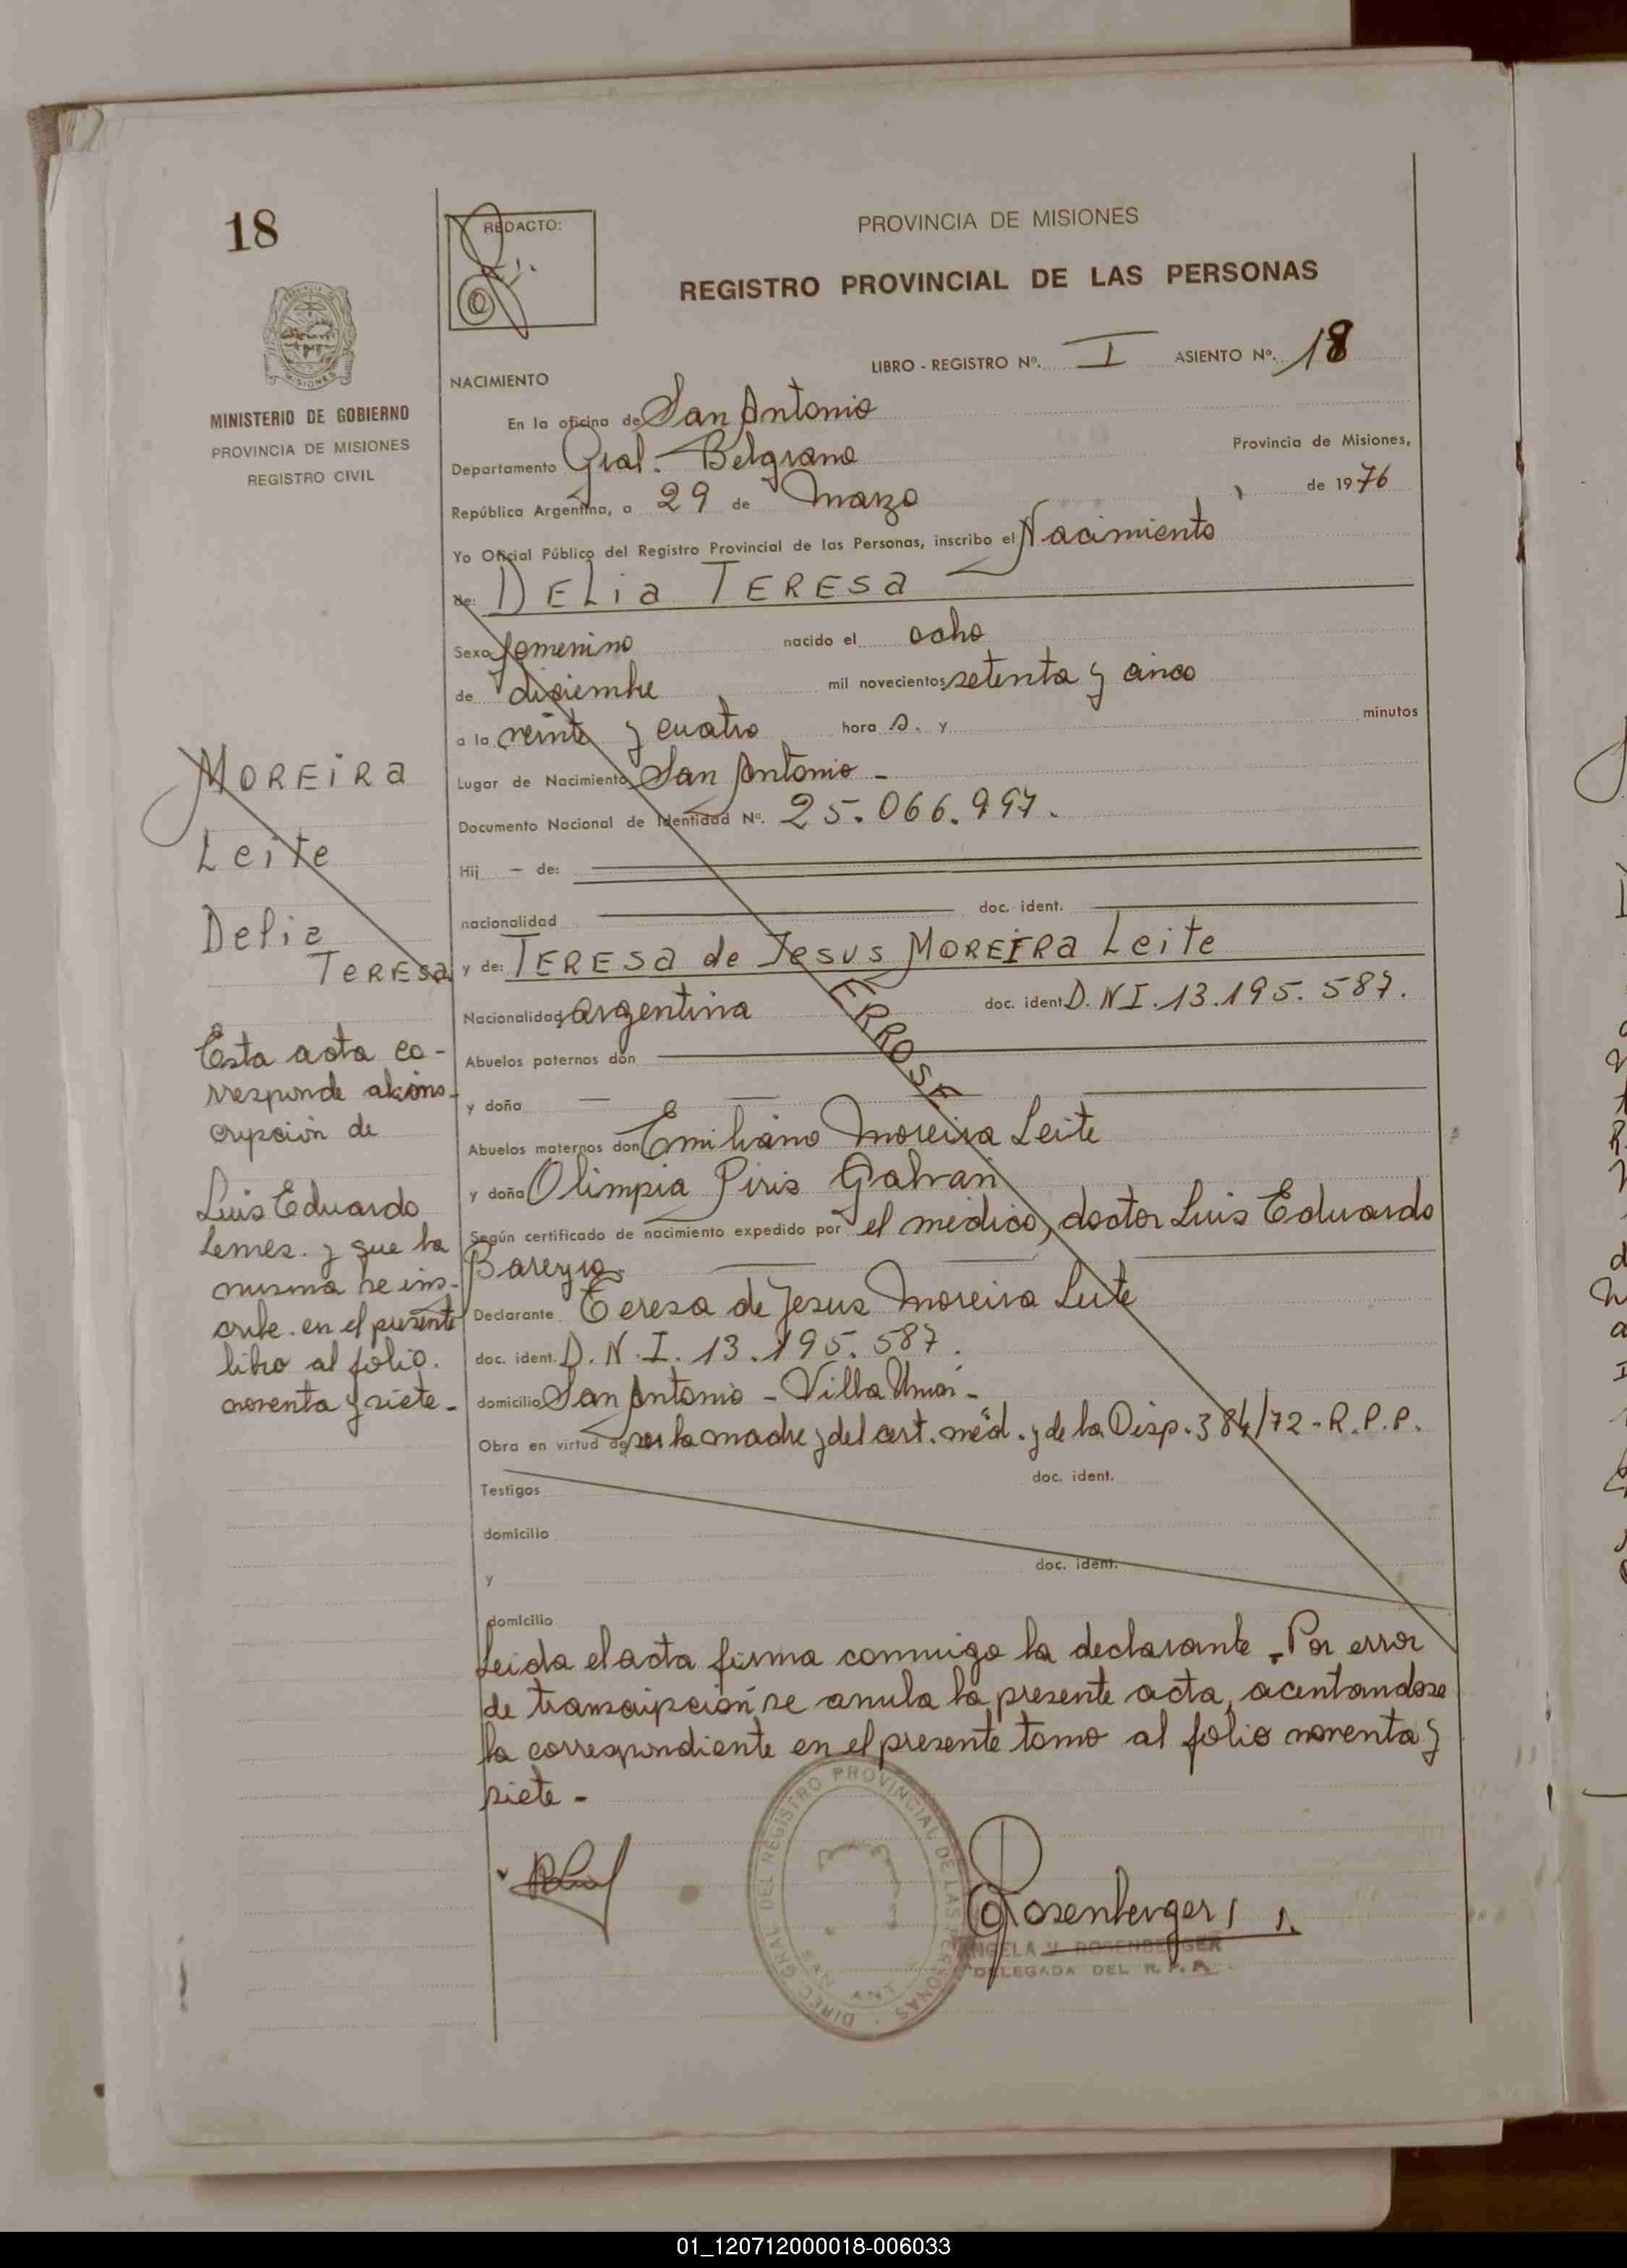 18
MINISTERIO DE GOBIERNO
PROVINCIA DE MISIONES
REGISTRO CIVIL
MOREIRA
Leite
Delia
TERESa
Esta acta co-
rresponde al ins-
cripción de
Luis Eduardo
Lemes. y que la
misma se ins-
cribe. en el presente
libro al folio.
noventa y siete-
REDACTO:
PROVINCIA DE MISIONES
REGISTRO PROVINCIAL DE LAS PERSONAS
LIBRO - REGISTRO Nº. I ASIENTO Nº. 18
NACIMIENTO
En la oficina de San Antonio
Departamento Gral. Belgrano Provincia de Misiones,
República Argentina, a 29 de Marzo de 1976
Yo Oficial Público del Registro Provincial de las Personas, inscribo el Nacimiento
de: DELia TERESa
Sexo femenino nacido el ocho
de diciembre mil novecientos setenta y cinco
a la veinte y cuatro hora s. y minutos
Lugar de Nacimiento San Antonio -
Documento Nacional de Identidad Nº. 25.066.997.
Hij — de:
nacionalidad doc. ident.
y de: TERESa de Jesus MOREIRa Leite
Nacionalidad argentina doc. ident. D.N I. 13.195.587.
ERROSE
Abuelos paternos don
y doña
Abuelos maternos don Emiliano Moreira Leite
y doña Olimpia Piris Galvan
Según certificado de nacimiento expedido por el médico, doctor Luis Eduardo
Bareyro.
Declarante Teresa de Jesus Moreira Leite
doc. ident. D.N.I. 13.195.587.
domicilio San Antonio - Villa Union -
Obra en virtud de ser la madre y del cert. méd. y de la Disp. 384/72 - R.P.P.
Testigos doc. ident.
domicilio
y doc. ident.
domicilio
Leida el acta firma conmigo la declarante. Por error
de transcripción se anula la presente acta, acentandose
la correspondiente en el presente tomo al folio noventa y
siete -
DIREC. GRAL DEL REGISTRO PROVINCIAL DE LAS PERSONAS
SAN ANT
Rosenberger
ANGELA V. ROSENBERGER
DELEGADA DEL R. P. P.
01_120712000018-006033